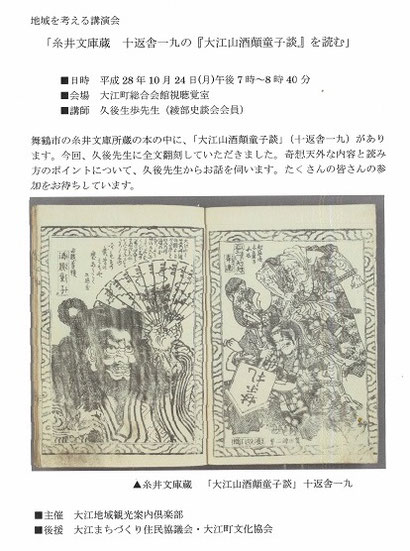 地域を考える講演会
「糸井文庫蔵　十返舎一九の『大江山酒顛童子談』を読む」
■日時　平成28年10月24日(月)午後7時～8時40分
■会場　大江町総合会館視聴覚室
■講師　久後生歩先生（綾部史談会会員）
舞鶴市の糸井文庫所蔵の本の中に、「大江山酒顛童子談」（十返舎一九）があり
ます。今回、久後先生に全文翻刻していただきました。奇想天外な内容と読み
方のポイントについて、久後先生からお話を伺います。たくさんの皆さんの参
加をお待ちしています。
▲糸井文庫蔵　「大江山酒顛童子談」十返舎一九
■主催　大江地域観光案内倶楽部
■後援　大江まちづくり住民協議会・大江町文化協会